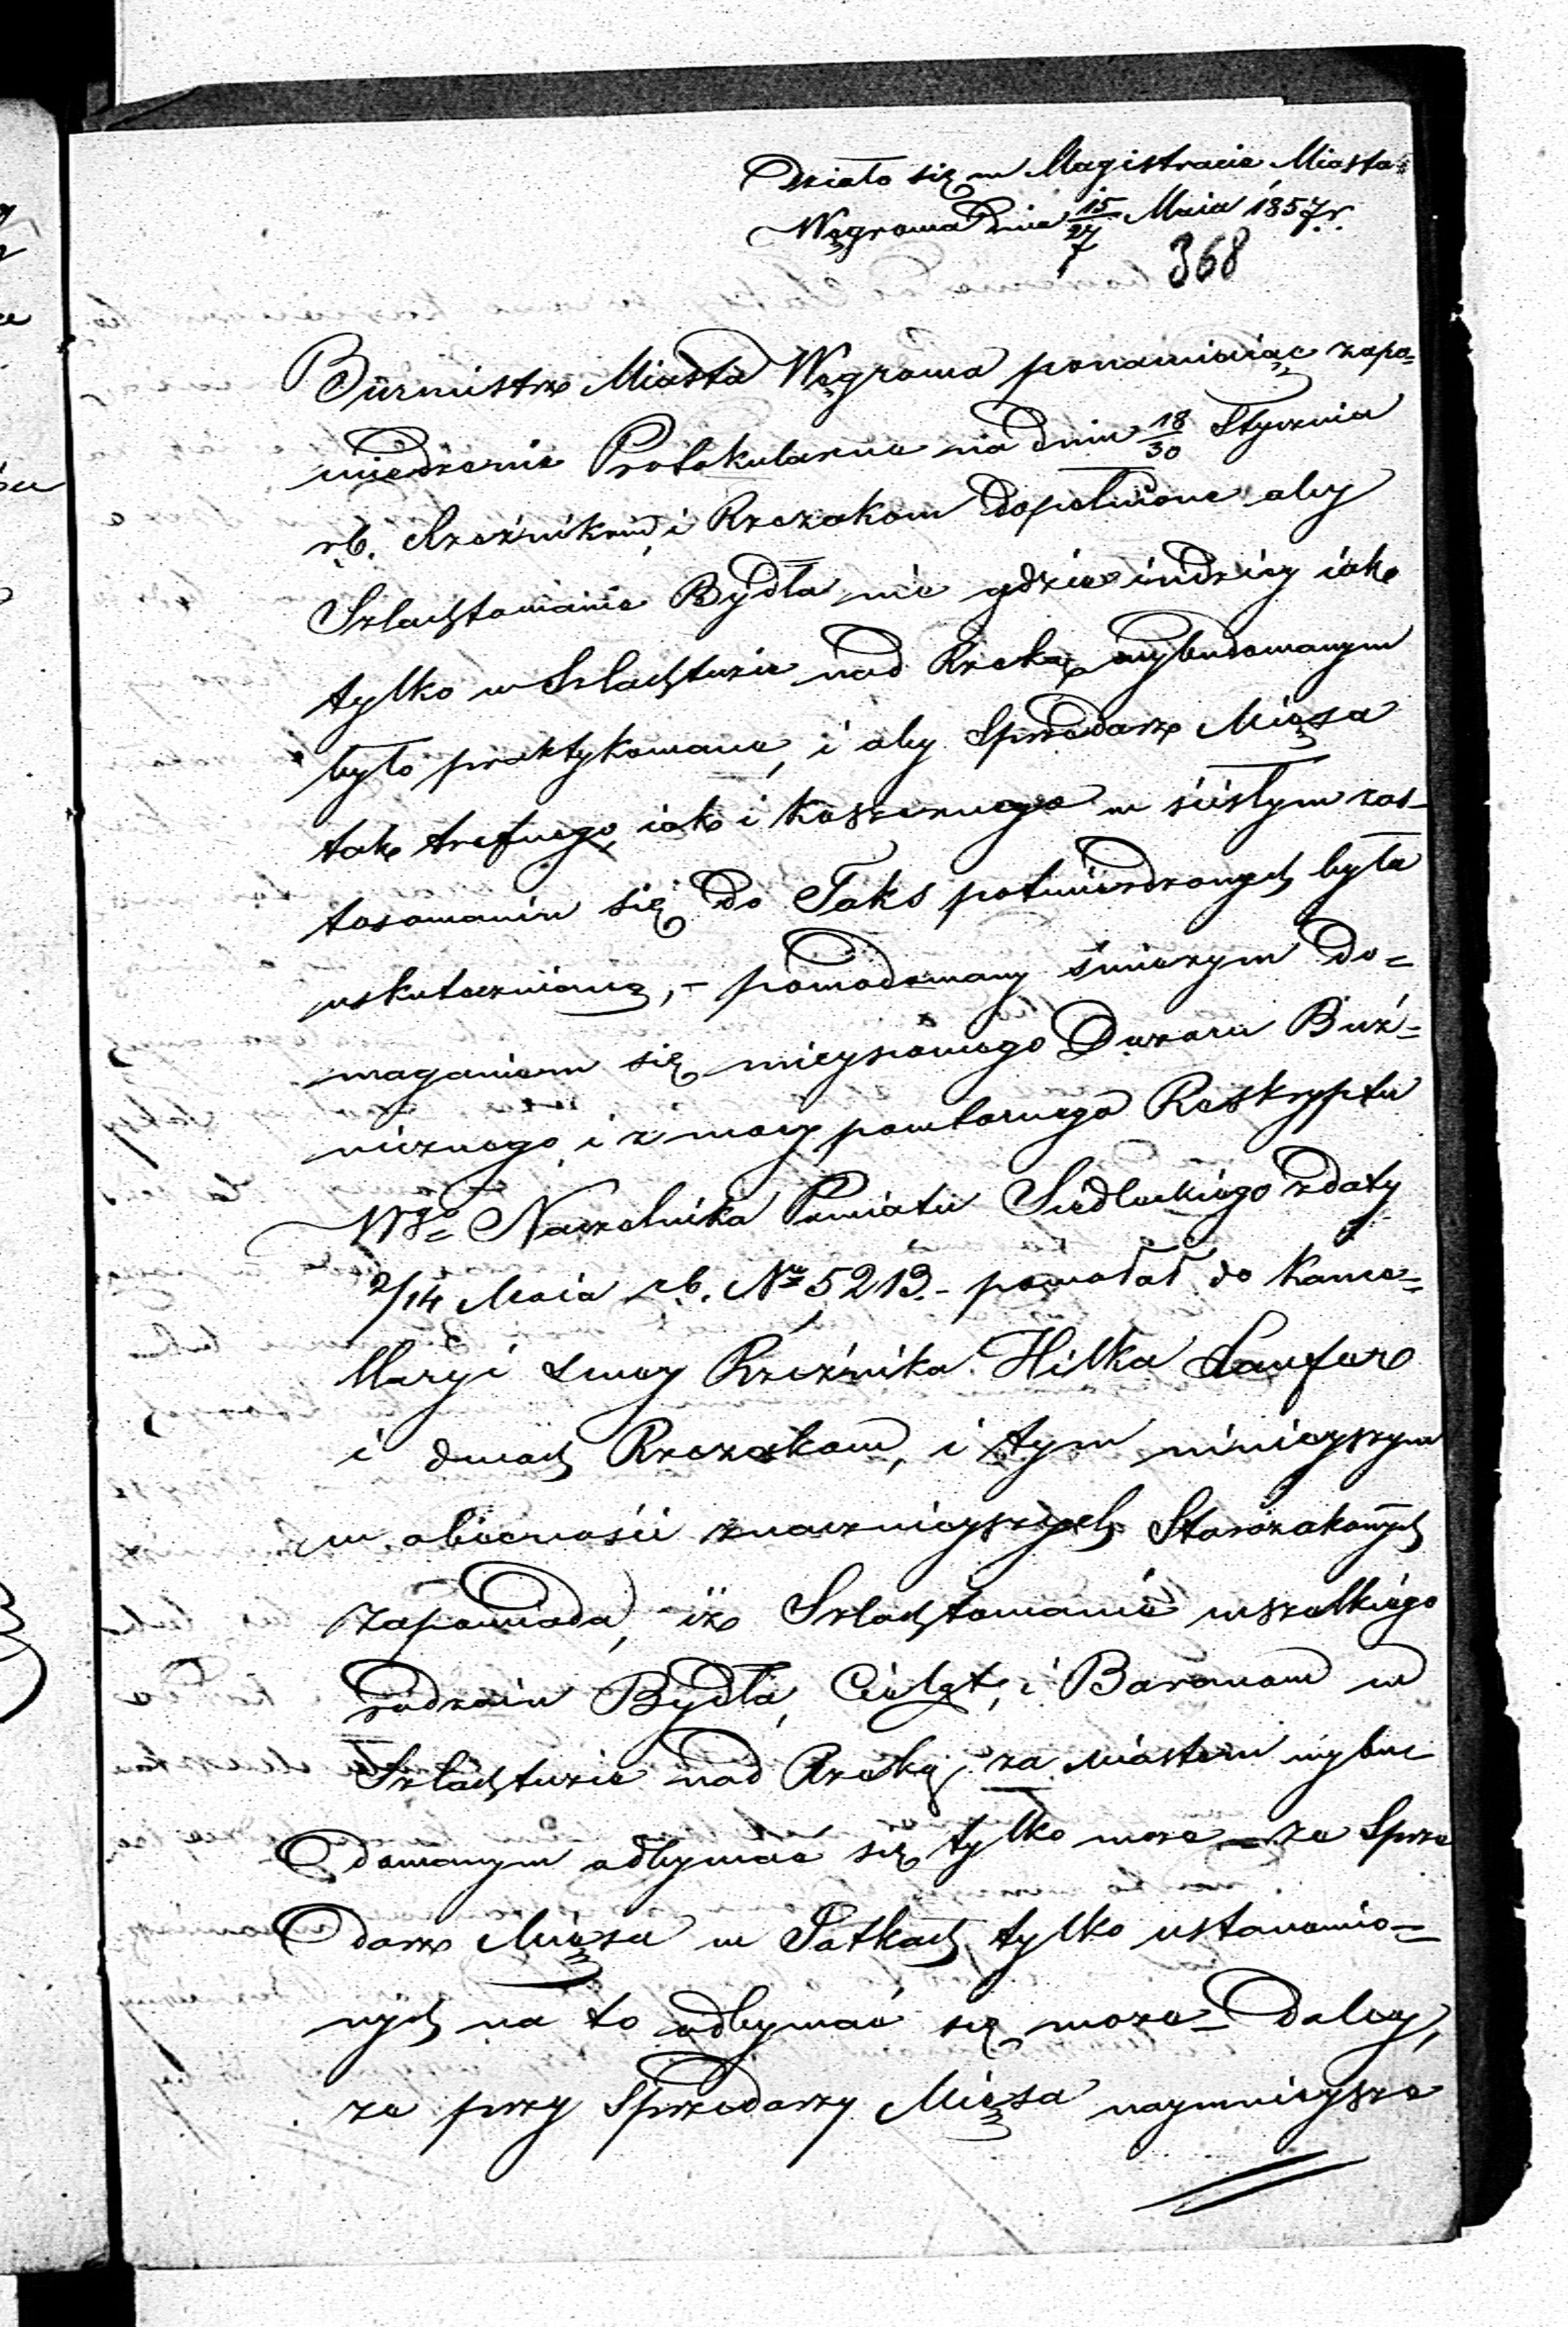 Działo się w Magistracie Miasta
Węgrowa Dnia 15/27 Maia 1857 r.
368
Burmistrz Miasta Węgrowa ponawiaiąc zapo=
wiedzenie Protokularne na dniu 18/30 Stycznia
r.b. Rzeźnikom i Rzezakom dopełnione aby
Szlachtowanie Bydła nie gdzie indziey iak
tylko w Szlachtuzie nad Rzeką wybudowanym
było praktykowane, i aby Sprzedarz Mięsa
tak trefnego, iak i Koszernego w ścisłym zas-
tosowaniu się do Taks potwierdzonych była
uskutecznianą, - powodowany świeżym do=
maganiem się mieyscowego Dozoru Buż=
nicznego, i z mocy powtornego Reskryptu
Wgo Naczelnika Powiatu Siedleckiego z daty
2/14 Maia r.b. No 5213. - powołał do Kance=
llaryi swey Rzeźnika Hilka
i dwoch Rzezakow, i tym ninieyszym
w obecności znacznieyszych Starozakonych
zapowiada, iż Szlachtowanie wszelkiego
rodzaiu Bydła, Cieląt, i Baranow w
Szlachtuzie nad Rzeką za miastem wybu-
dowanym odbywać się tylko może - że Sprze
darz Mięsa w Jatkach tylko ustanowio=
nych na to odbywać się może - Daley,
że przy Sprzedarzy Mięsa naymnieysze